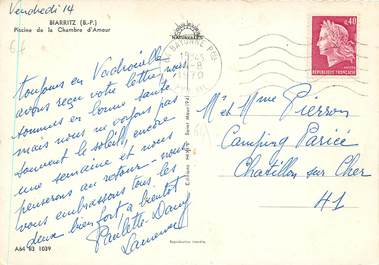 Vendredi 14
BIARRITZ (B.-P.)
Piscine de la Chambre d'Amour
64
toujours en Vadrouille
avons reçu votre lettre, nous
sommes en bonne santé
mais nous ne voyons pas
souvent le soleil, encore
une semaine et nous
penserons au retour - nous
vous embrassons tous les
deux bien fort à bientôt
Paulette Dany
A64 83 1039
"NATURELLES"
Reproduction interdite
1970
0,40
RÉPUBLIQUE FRANÇAISE
Mr et Mme Pierson
Camping Paricé
Chatillon sur Cher
41